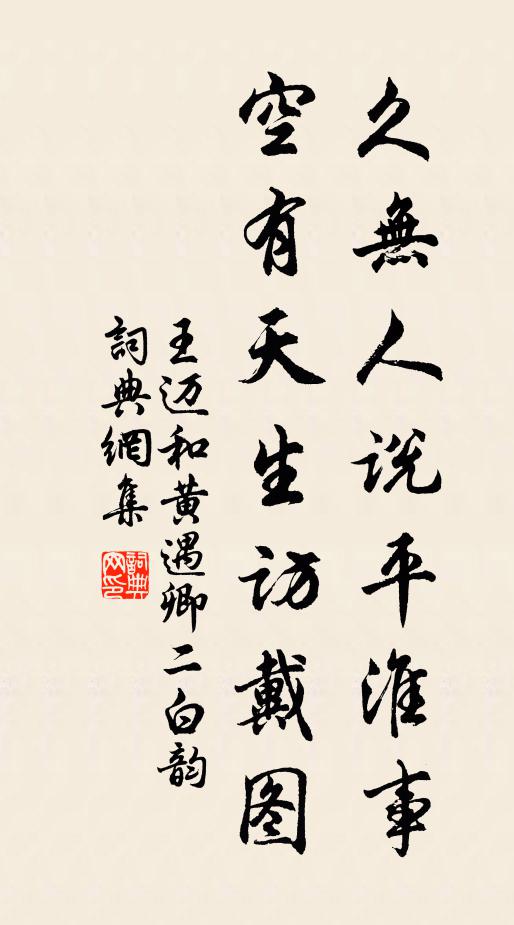 久無人说平淮事
空有天生访戴图
王迈和黄遇卿二白韵
詞典網集
詞典網印